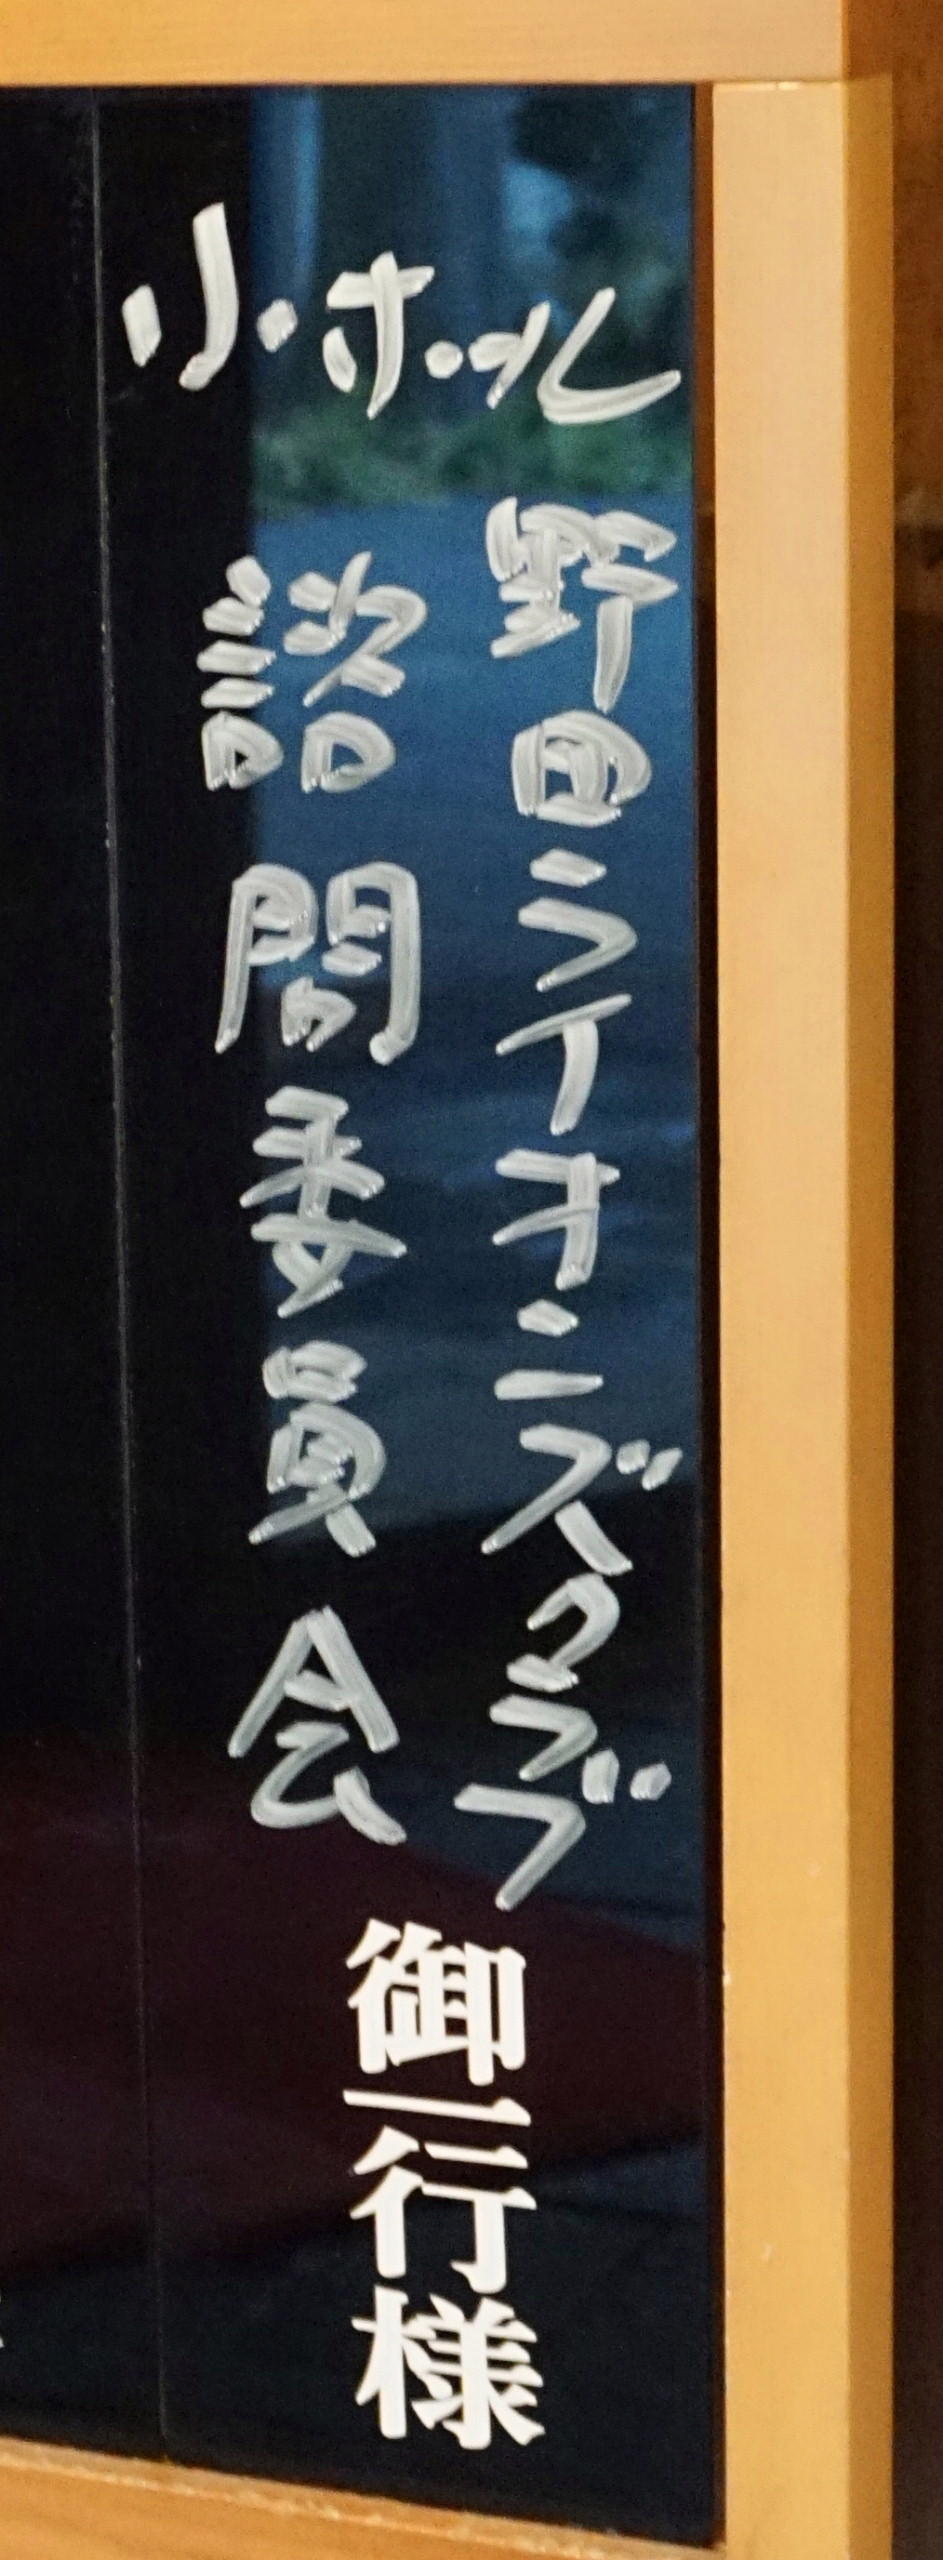 小ホール
野田ライオンズクラブ
諮問委員会
御一行様